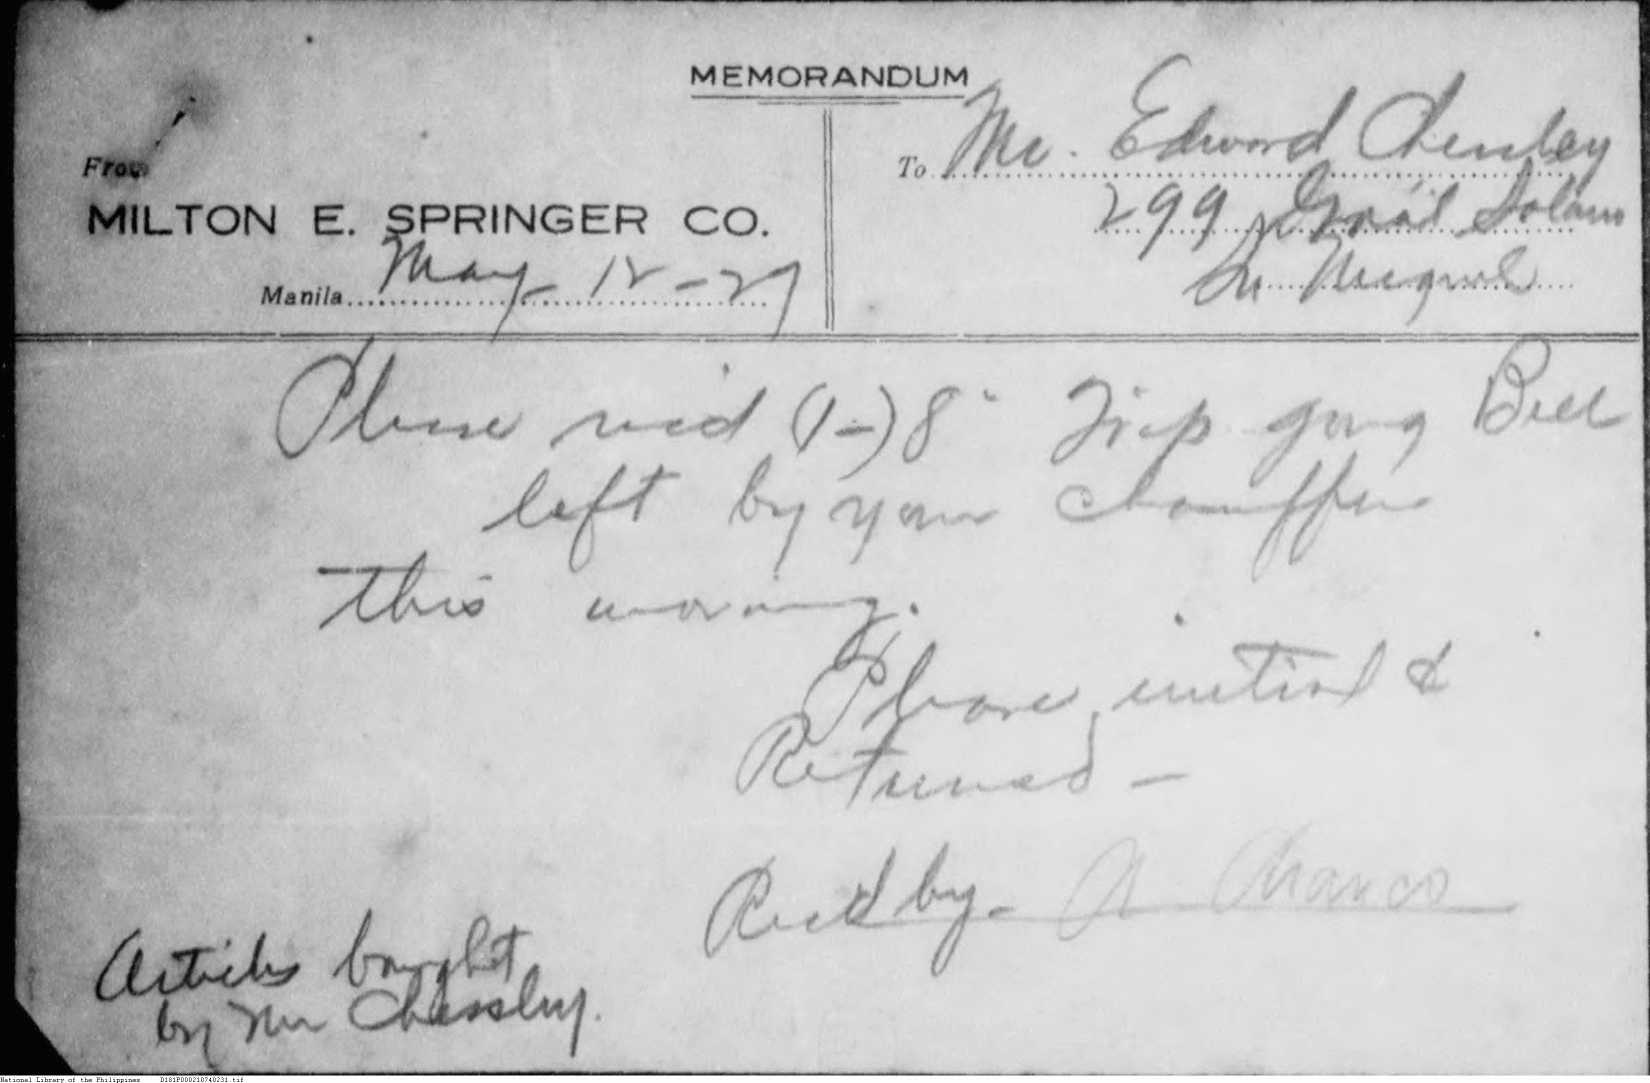 MEMORANDUM
From
To Mr. Edward Chessley
299 Gral Solano
MILTON E. SPRINGER CO.
Manila May 12-27
Sn Miguel
Please recd (1-) 8" Trip gong Bell
left by your chauffeur
this morning.
Please initial &
Returned -
Recd by -
Articles bought
by Mr Chessley.
National Library of the Philippines D181P000210740231.tif